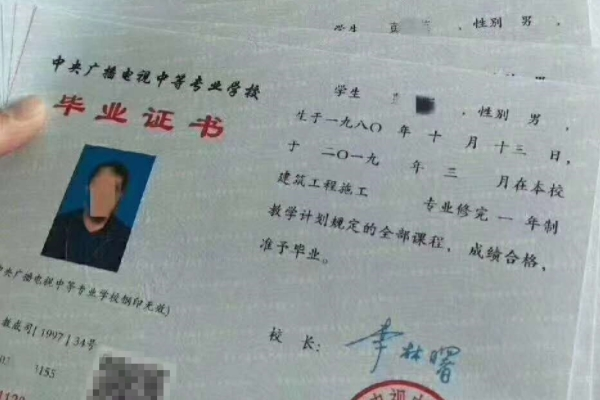 学生
性别 男,
中央广播电视中等专业学校
毕业证书
学生 , 性别 男,
生于一九八〇年十月十三日,
于二〇一九年三月在本校
建筑工程施工 专业修完一年制
教学计划规定的全部课程, 成绩合格,
准予毕业。
中央广播电视中等专业学校钢印无效)
教成司[1997]34号
校 长: 李林曙
155